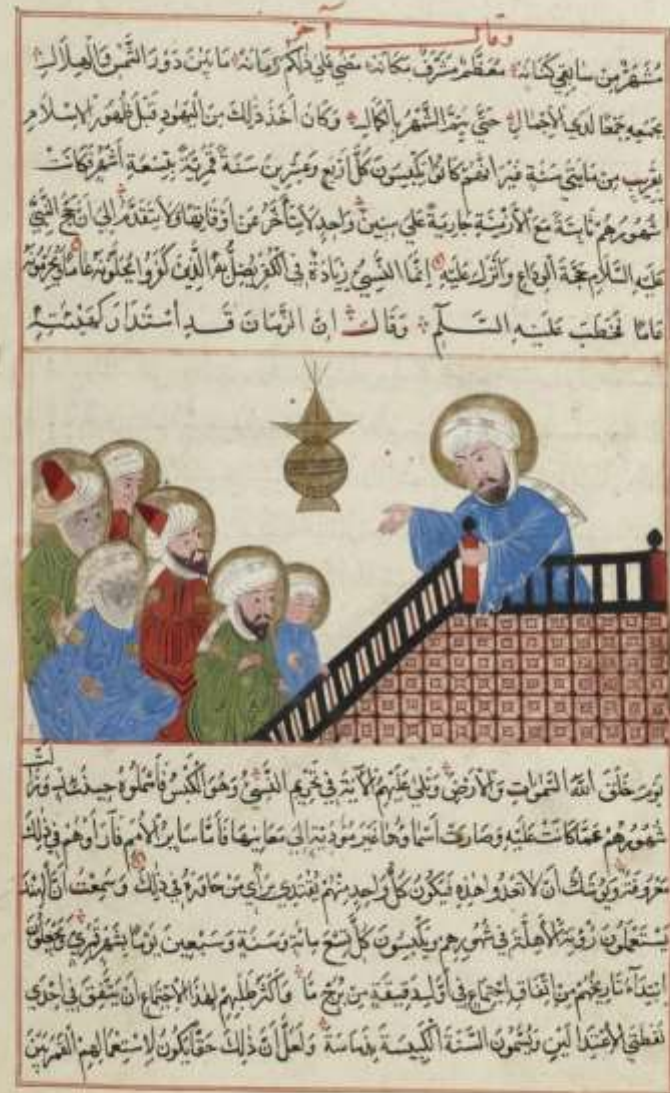 وقال آخر
مشهر من سابقي كنانه معظم مشرف مكانه مضى على ذلكم زمانه ما بين دور الشمس والهلال
يجمعه جمعا لدى الاجمال حتى يتم الشهر بالكمال وكان اخذ ذلك من اليهود قبل ظهور الاسلام
بقريب من مايتي سنة غير انهم كانوا يكبسون كل اربع وعشرين سنة قمرية بتسعة اشهر فكانت
شهورهم ثابتة مع الازمنة جارية على سنن واحد لا يتأخر عن اوقاتها ولا يتقدم الى ان حج النبي
عليه السلام حجة الوداع وانزل عليه انما النسيء زيادة في الكفر يضل به الذين كفروا يحلونه عاما ويحرمونه
عاما فخطب عليه السلم وقال ان الزمان قد استدار كهيئته
يوم خلق الله السموات والارض وتلى عليهم الآية في تحريم النسيء وهو الكبس فأهملوه حينئذ وزالت
شهورهم عما كانت عليه وصارت اسماؤها غير مؤدية الى معانيها فأما ساير الأمم فآراؤهم في ذلك
معروفة ويوشك أن لا تعدوا هذه فيكون كل واحد منهم يقتدي برأي من جاوره في ذلك وسمعت أن الهند
يستعملون رؤية الأهلة في شهورهم ويكبسون كل تسع مائة وستة وسبعين يوما بشهر قمري ويجعلون
ابتداء تاريخهم من اتفاق اجتماع في أول دقيقة من برج ما وأكثر طلبهم لهذا الاجتماع أن يتفق في احدى
نقطتي الاعتدالين ويسمون السنة الكبيسة بذماسة ولعل أن ذلك حقا يكون لاستعمالهم القمر من